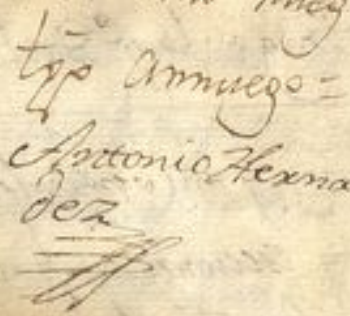 tgo a mi ruego =
Anttonio Herna
dez